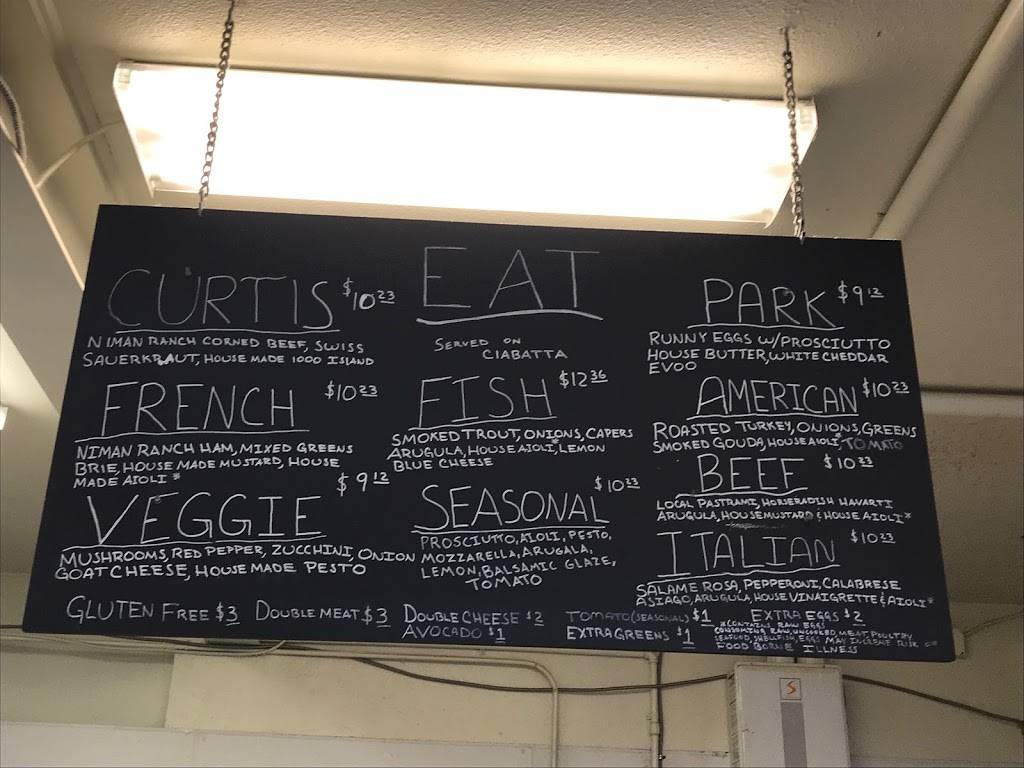 EAT
SERVED ON
CIABATTA
CURTIS $10 23
NIMAN RANCH CORNED BEEF, SWISS
SAUERKRAUT, HOUSE MADE 1000 ISLAND
FRENCH $10 23
NIMAN RANCH HAM, MIXED GREENS
BRIE, HOUSE MADE MUSTARD, HOUSE
MADE AIOLI*
VEGGIE $9 12
MUSHROOMS, RED PEPPER, ZUCCHINI, ONION
GOAT CHEESE, HOUSE MADE PESTO
FISH $12 36
SMOKED TROUT, ONIONS, CAPERS
ARUGULA, HOUSE AIOLI*, LEMON
BLUE CHEESE
SEASONAL $10 23
PROSCIUTTO, AIOLI, PESTO,
MOZZARELLA, ARUGALA,
LEMON, BALSAMIC GLAZE,
TOMATO
PARK $9 12
RUNNY EGGS W/PROSCIUTTO
HOUSE BUTTER, WHITE CHEDDAR
EVOO
AMERICAN $10 23
ROASTED TURKEY, ONIONS, GREENS
SMOKED GOUDA, HOUSE AIOLI*, TOMATO
BEEF $10 23
LOCAL PASTRAMI, HORSERADISH HAVARTI
ARUGULA, HOUSE MUSTARD & HOUSE AIOLI*
ITALIAN $10 23
SALAME ROSA, PEPPERONI, CALABRESE
ASIAGO, ARUGULA, HOUSE VINAIGRETTE & AIOLI*
GLUTEN FREE $3 DOUBLE MEAT $3 DOUBLE CHEESE $2 TOMATO (SEASONAL) $1 EXTRA EGGS $2
AVOCADO $1 EXTRA GREENS $1
*CONTAINS RAW EGGS
CONSUMING RAW, UNCOOKED, MEAT, POULTRY
SEAFOOD, SHELLFISH, EGGS MAY INCREASE RISK OF
FOOD BORNE ILLNESS